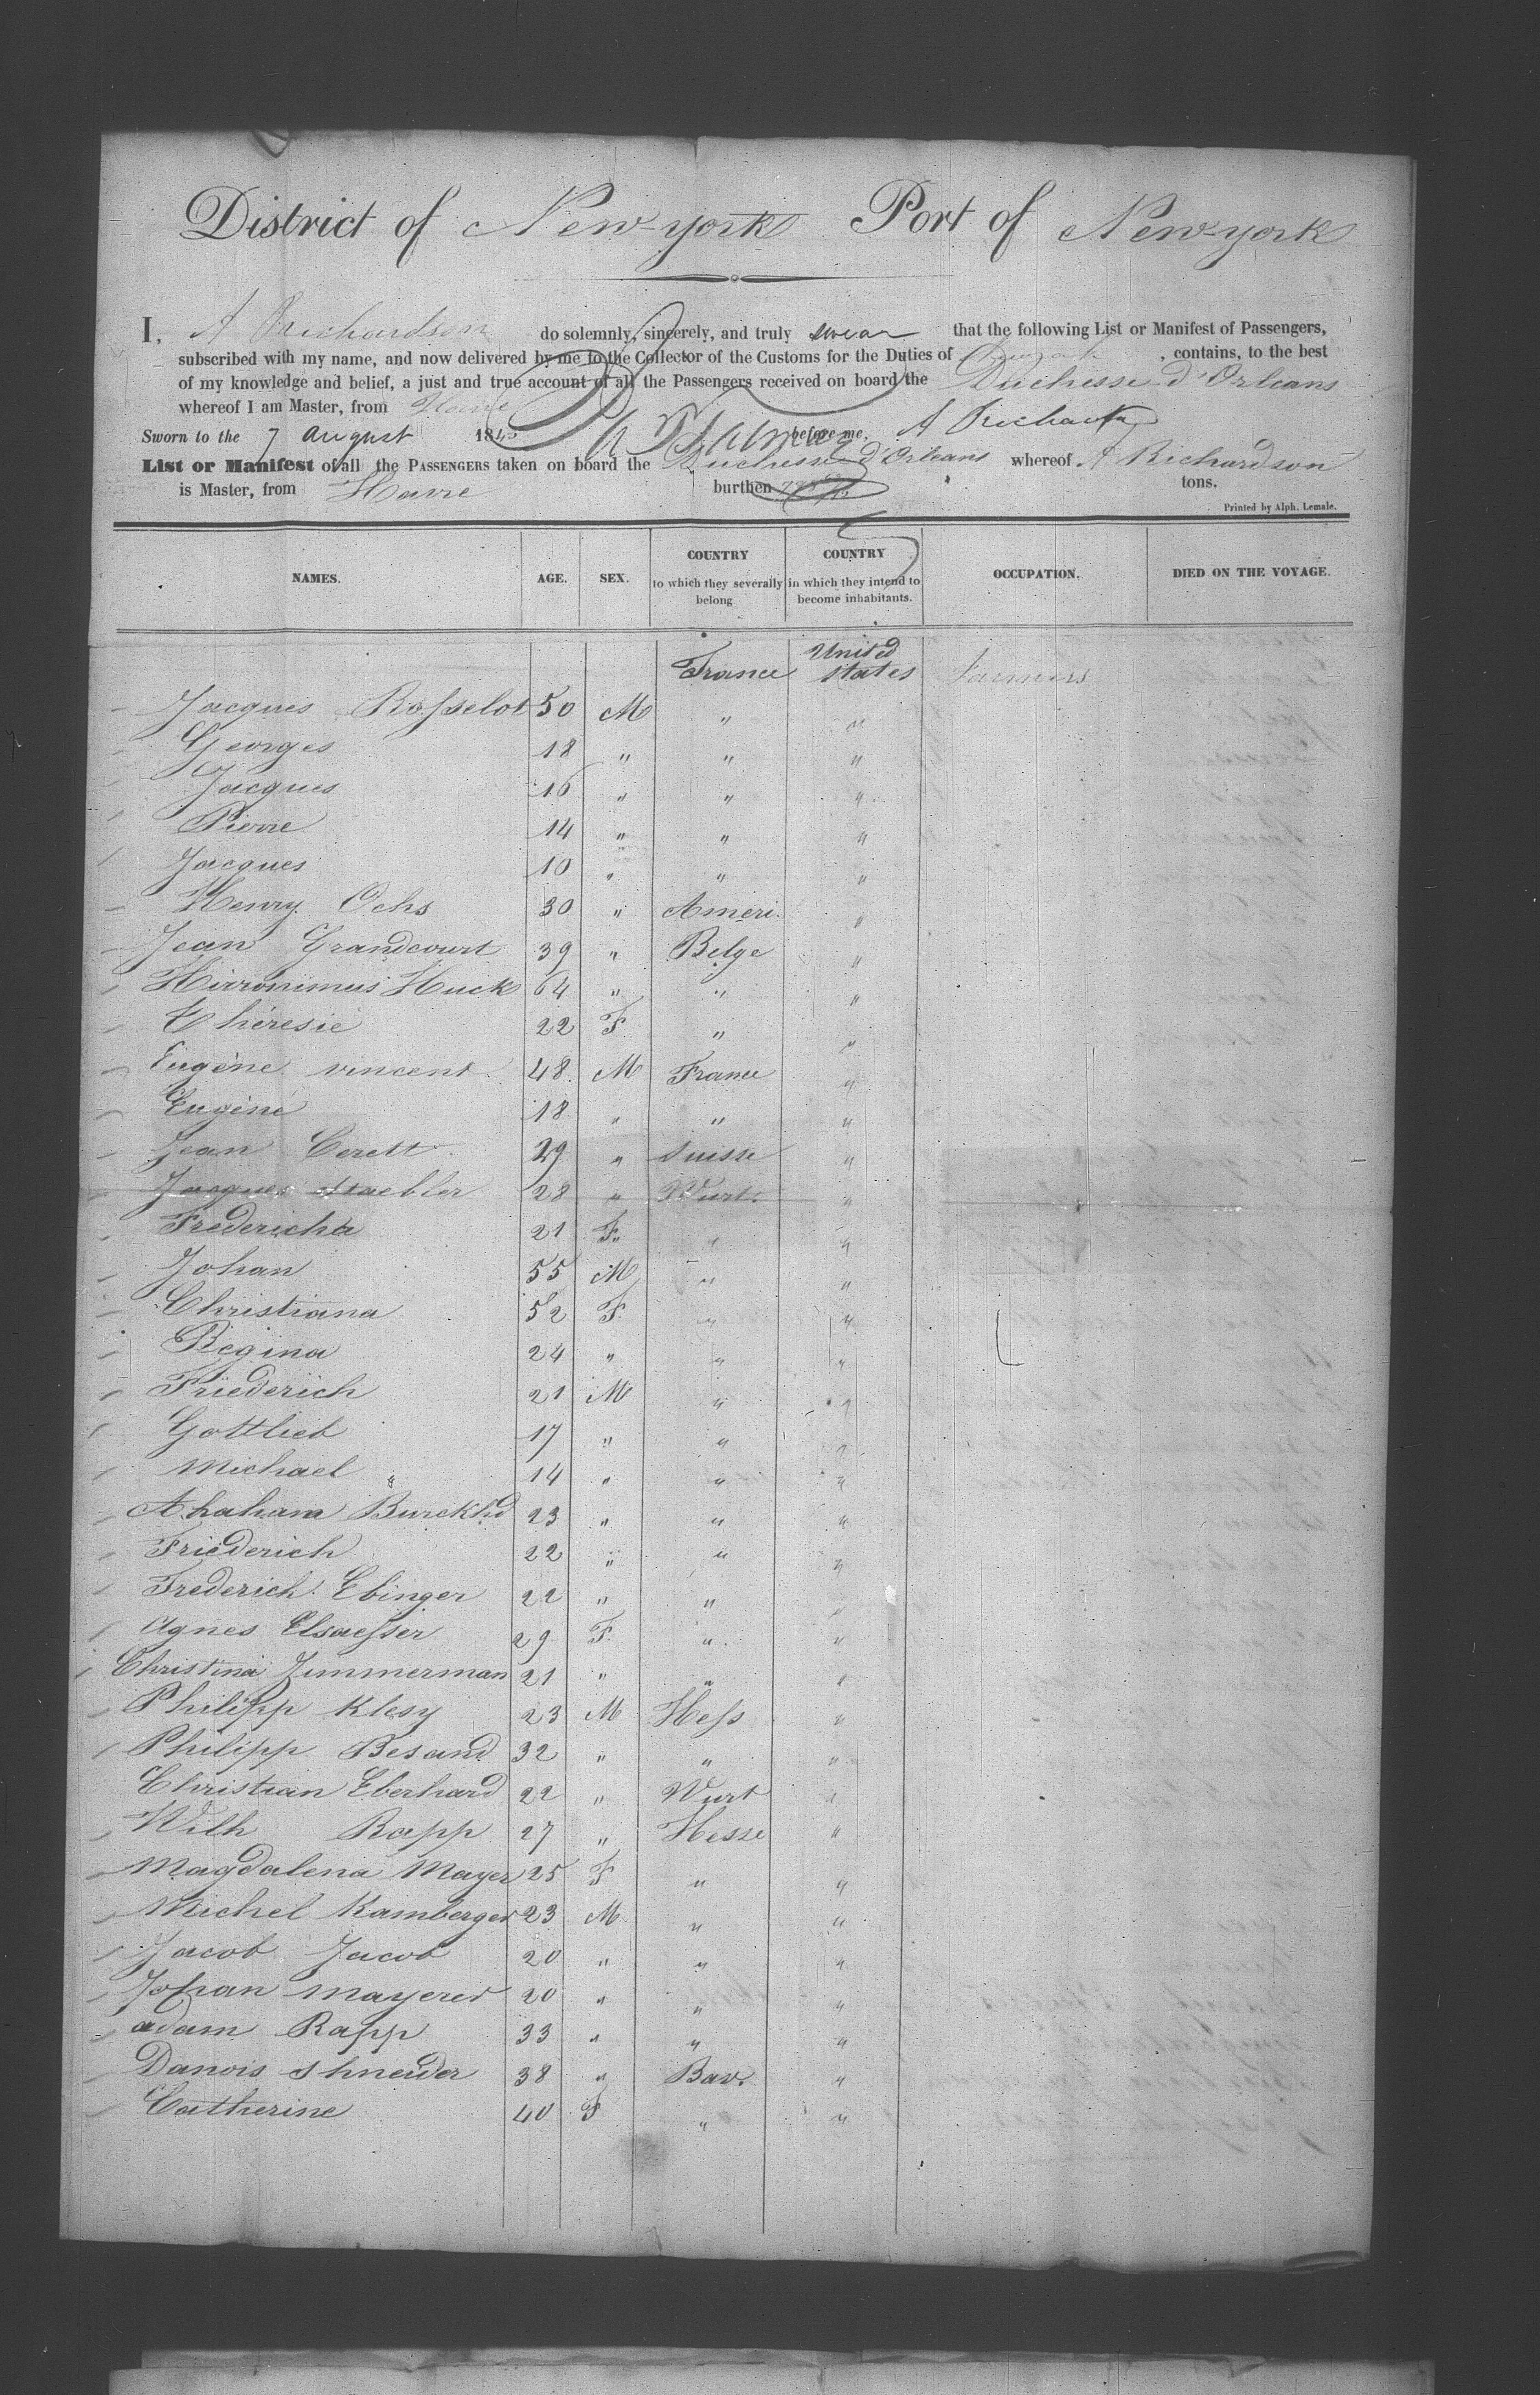 District of New-york Port of New-york
I, A Richardson do solemnly, sincerely, and truly swear that the following List or Manifest of Passengers,
subscribed with my name, and now delivered by me to the Collector of the Customs for the Duties of , contains, to the best
of my knowledge and belief, a just and true account of all the Passengers received on board the Duchesse d'Orleans
whereof I am Master, from Havre
Sworn to the 7 August 184 before me, A Richardson
List or Manifest of all the PASSENGERS taken on board the Duchesse d'Orleans whereof A Richardson
is Master, from Havre burthen tons.
Printed by Alph. Lemale.
NAMES. AGE. SEX. COUNTRY to which they severally belong COUNTRY in which they intend to become inhabitants. OCCUPATION. DIED ON THE VOYAGE.
France United states farmers
Jacques Rosselot 50 M " "
Georges 18 " " "
Jacques 16 " " "
Pierre 14 " " "
Jacques 10 " " "
Henry Ochs 30 " Ameri. "
Jean Grandcourt 39 " Belge "
Hieronimus Huck 64 " " "
Théresie 22 F " "
Eugène vincent 48 M France "
Eugène 18 " " "
Jean Cerett 29 " suisse "
Jacques staebler 28 " Wurt. "
Fredericha 21 F " "
Johan 55 M " "
Christiana 52 F " "
Regina 24 " " "
Friederich 21 M " "
Gottlieb 17 " " "
Michael " 14 " " "
Abraham Burckhd 23 " " "
Friederich 22 " " "
Frederich Ebinger 22 " " "
Agnes Elsaesser 29 F " "
Christina Zimmerman 21 " " "
Philipp Klesy 23 M Hess "
Philipp Besand 32 " " "
Christian Eberhard 22 " Wurt "
Wilh Rapp 27 " Hesse "
Magdalena Mayer 25 F " "
Michel Kamberger 23 M " "
Jacob Jacob 20 " " "
Johan Mayerer 20 " " "
adam Rapp 33 " " "
Danois shneider 38 " Bav. "
Catherine 40 F " "